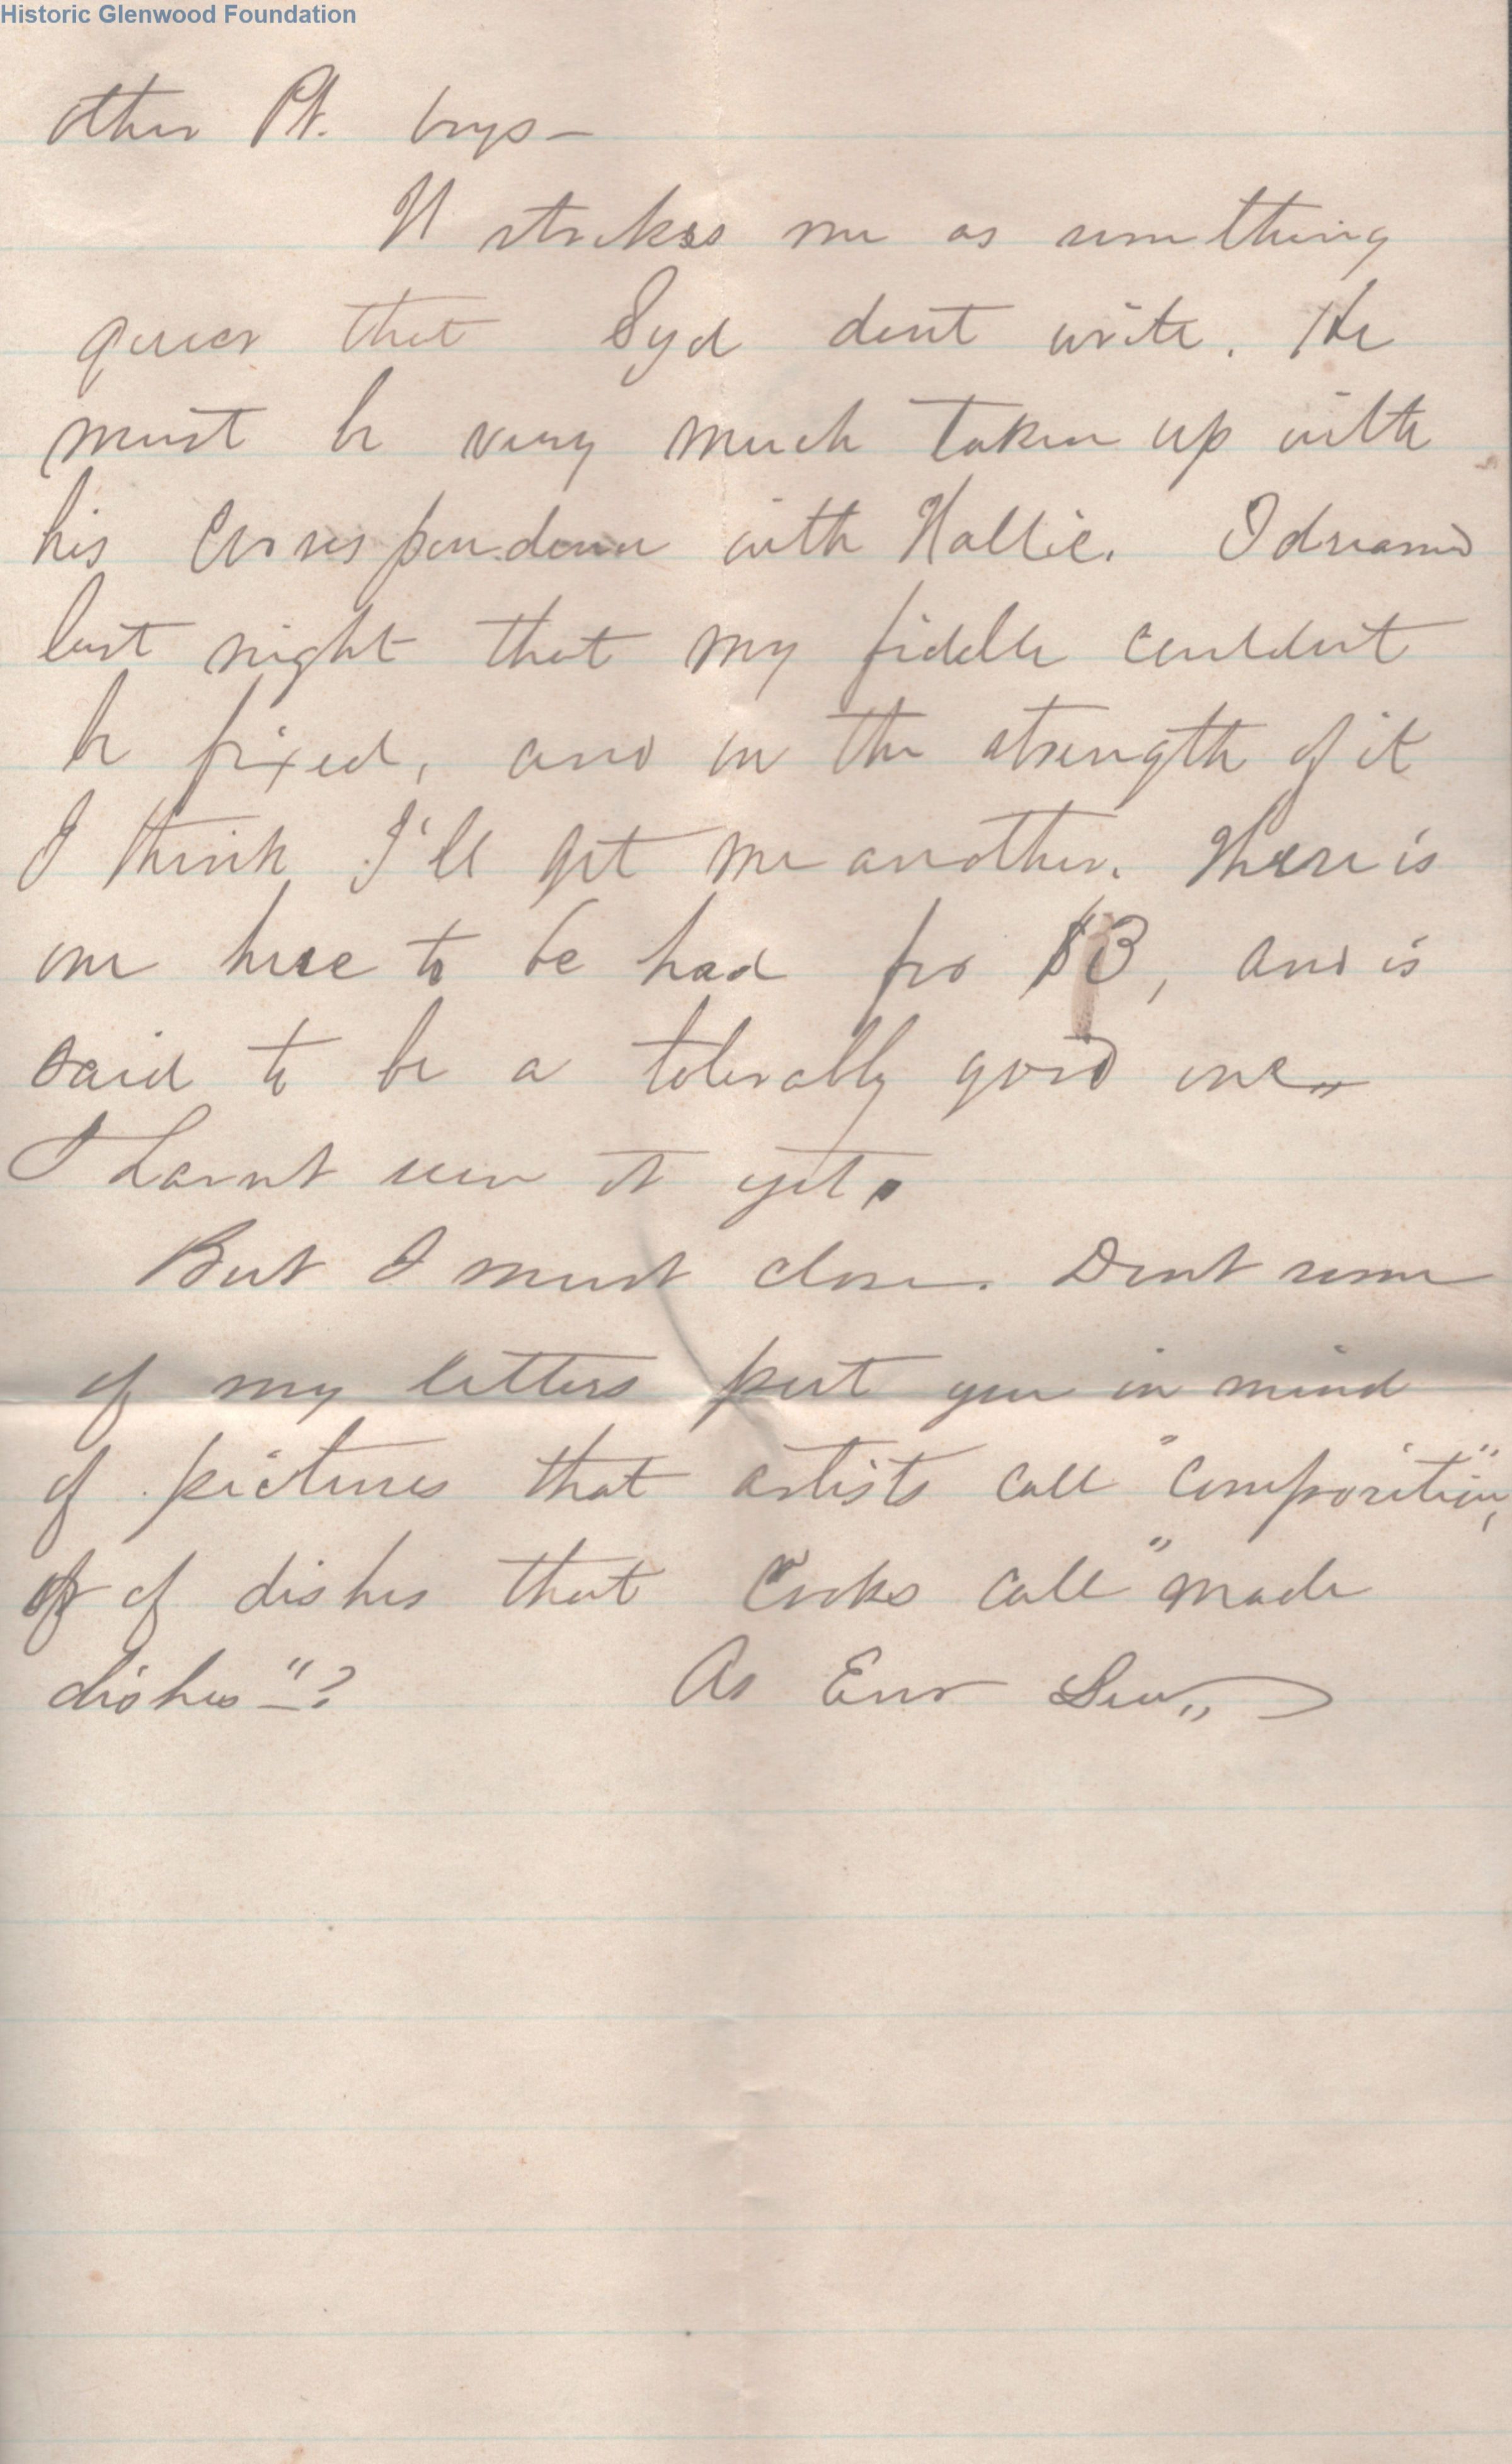 Historic Glenwood Foundation
other Pt. boys—
It strikes me as something
queer that Syd dont write. He
must be very much taken up with
his correspondence with Hallie. I dreamed
last night that my fiddle couldnt
be fixed, and on the strength of it
I think I'll get me another. There is
one here to be had for $3, and is
said to be a tolerably good one„
I havnt seen it yet.
But I must close. Dont some
of my letters put you in mind
of pictures that artists call "composition",
or of dishes that cooks call "made
dishes"?
As Ever